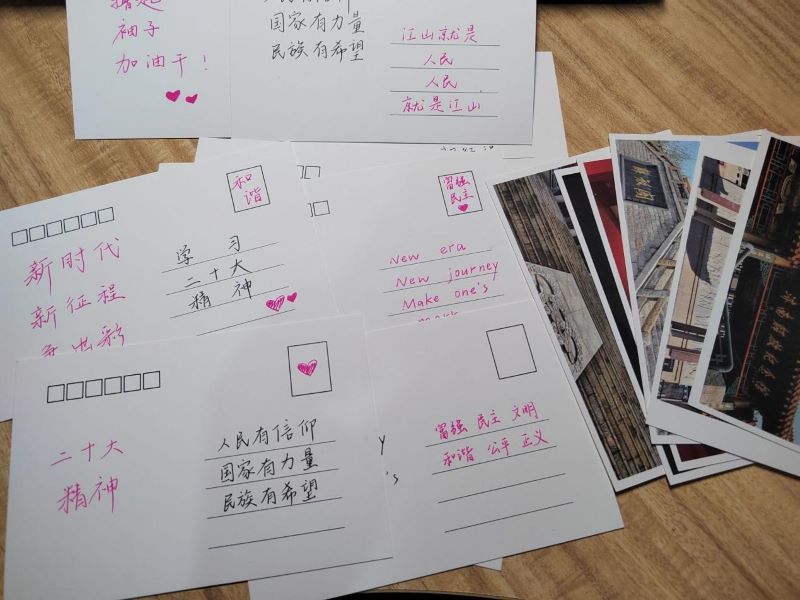 袖子
加油干！
人民有信仰
国家有力量
民族有希望
江山就是
人民
人民
就是江山
和
谐
新时代
新征程
学 习
二十大
精 神
富强
民主
New era
New journey
Make one's
二十大
精神
人民有信仰
国家有力量
民族有希望
富强 民主 文明
和谐 公平 正义